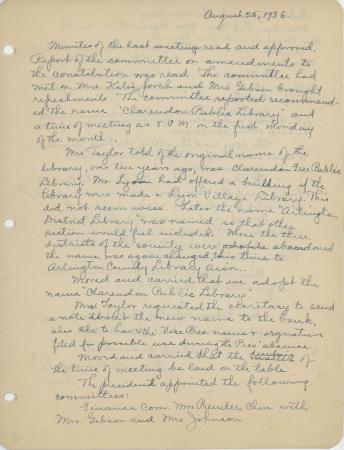 August 25, 1936.
Minutes of the last meeting read and approved.
Report of the committee on amendments to
the constitution was read. The committee had
met on Mrs. Kale's porch and Mrs Gibson brought
refreshments. The committee reported recommend-
ed the name "Clarendon Public Library" and
a time of meeting as 8 P.M. on the first Monday
of the month.
Mrs Taylor told of the original name of the
library, our ten years ago, was Clarendon Free Public
Library. Mr. Lyon had offered a building if the
library was made a Lyon Village Library. This
did not seem wise. Later the name "Arlington
District Library" was named so that other
section would feel included. When the three
districts of the county were abandoned
the name was again changed, this time to
Arlington County Library Assn.
Moved and carried that we adopt the
name "Clarendon Public Library."
Mrs Taylor requested the secretary to send
a note about the new name to the bank,
also to have the Vice Pres. name & signature
filed for possible use during the Pres' absence.
Moved and carried that the matter of
the time of meeting be laid on the table.
The president appointed the following
committees:
Finance Com. Mrs Preuder, Chm. with
Mrs. Gibson and Mrs Johnson